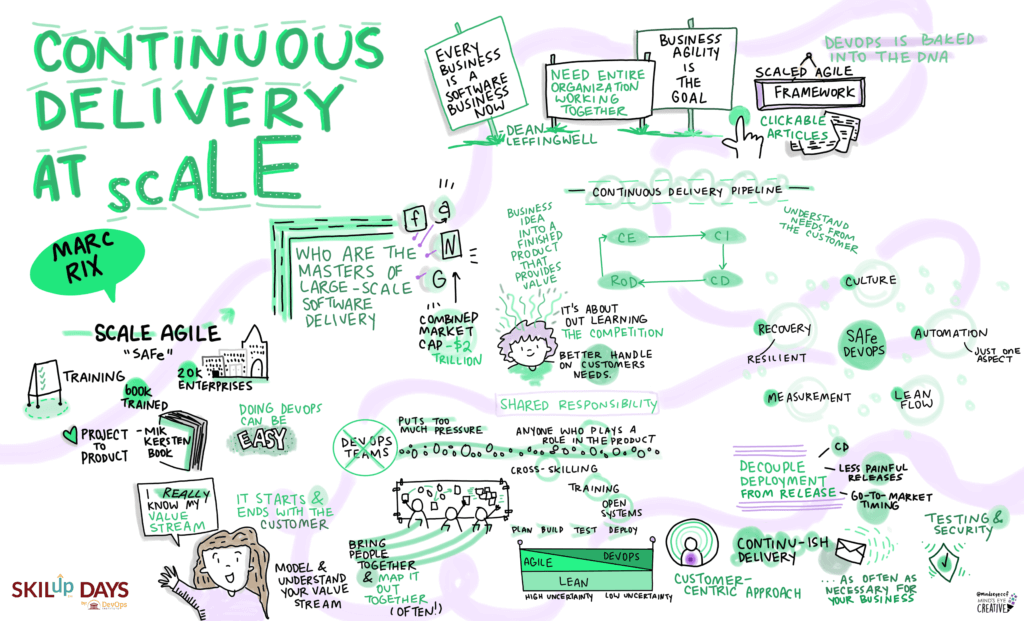 CONTINUOUS
DELIVERY
AT SCALE
MARC
RIX
EVERY
BUSINESS
IS A
SOFTWARE
BUSINESS
NOW
-DEAN
LEFFINGWELL
NEED ENTIRE
ORGANIZATION
WORKING
TOGETHER
BUSINESS
AGILITY
IS
THE
GOAL
DEVOPS IS BAKED
INTO THE DNA
SCALED AGILE
FRAMEWORK
CLICKABLE
ARTICLES
WHO ARE THE
MASTERS OF
LARGE-SCALE
SOFTWARE
DELIVERY
f
a
N
G
COMBINED
MARKET
CAP -$2
TRILLION
BUSINESS
IDEA
INTO A
FINISHED
PRODUCT
THAT
PROVIDES
VALUE
IT'S ABOUT
OUT LEARNING
THE COMPETITION
BETTER HANDLE
ON CUSTOMERS
NEEDS.
CONTINUOUS DELIVERY PIPELINE
CE
CI
ROD
CD
UNDERSTAND
NEEDS FROM
THE CUSTOMER
CULTURE
RECOVERY
RESILIENT
SAFe
DEVOPS
AUTOMATION
JUST ONE
ASPECT
MEASUREMENT
LEAN
FLOW
SCALE AGILE
"SAFe"
TRAINING
600K
TRAINED
20K
ENTERPRISES
PROJECT
TO
PRODUCT
-MIK
KERSTEN
BOOK
DOING DEVOPS
CAN BE
EASY
SHARED RESPONSIBILITY
DEVOPS
TEAMS
PUTS TOO
MUCH PRESSURE
ANYONE WHO PLAYS A
ROLE IN THE PRODUCT
CROSS-SKILLING
TRAINING
OPEN
SYSTEMS
DECOUPLE
DEPLOYMENT
FROM RELEASE
CD
LESS PAINFUL
RELEASES
GO-TO-MARKET
TIMING
I REALLY
KNOW MY
VALUE
STREAM
IT STARTS &
ENDS WITH THE
CUSTOMER
MODEL &
UNDERSTAND
YOUR VALUE
STREAM
BRING
PEOPLE
TOGETHER
& MAP IT
OUT
TOGETHER
(OFTEN!)
PLAN BUILD TEST DEPLOY
AGILE
DEVOPS
LEAN
HIGH UNCERTAINTY
LOW UNCERTAINTY
CUSTOMER-
CENTRIC APPROACH
CONTINU-ISH
DELIVERY
...AS OFTEN AS
NECESSARY FOR
YOUR BUSINESS
TESTING &
SECURITY
SKILup DAYS
DevOps
@mindseyeccf
MIND'S EYE
CREATIVE